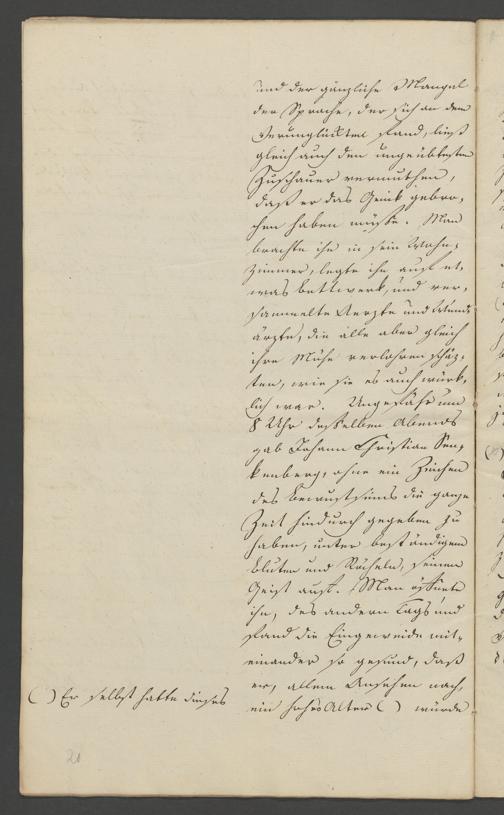 und der gänzliche Mangel
der Sprache, der sich an dem
Verunglückten fand, ließ
gleich auch den ungeübtesten
Zuschauer vermuthen,
daß er das Genick gebro-
chen haben müße. Man
brachte ihn in sein Wohn-
zimmer, legte ihn auf et-
was bettwerk, und ver-
sammelte Aerzte und Wund-
ärzte, die alle aber gleich
ihre Mühe verlohren schäz-
ten, wie sie es auch würk-
lich war. Ungefähr um
8 Uhr desselben Abends
gab Johann Christian Sen-
kenberg, ohne ein Zeichen
des bewustseins die ganze
Zeit hindurch gegeben zu
haben, unter beständigem
bluten und Röcheln, seinen
Geist auf. Man öffnete
ihn, des andern Tags und
fand die Eingeweide mit-
einander so gesund, daß
er, allem Ansehen nach,
ein hohes Alter ( ) würde
( ) Er selbst hatte dieses
21